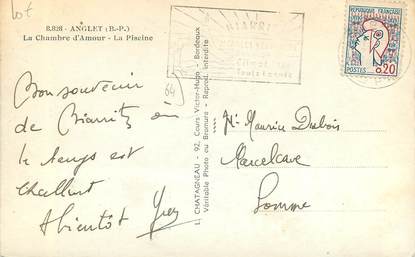 lot
8.828 - ANGLET (B.-P.)
La Chambre d'Amour - La Piscine
BIARRITZ
Climat
64
RÉPUBLIQUE FRANÇAISE
POSTES 0,20
Bon souvenir
de Biarritz où
le temps est
excellent
A bientôt Yves
L. CHATAGNEAU - 92, Cours Victor-Hugo - Bordeaux
Véritable Photo au Bromure - Reprod. interdite
Mr Maurice Dubois
Marcelcave
Somme